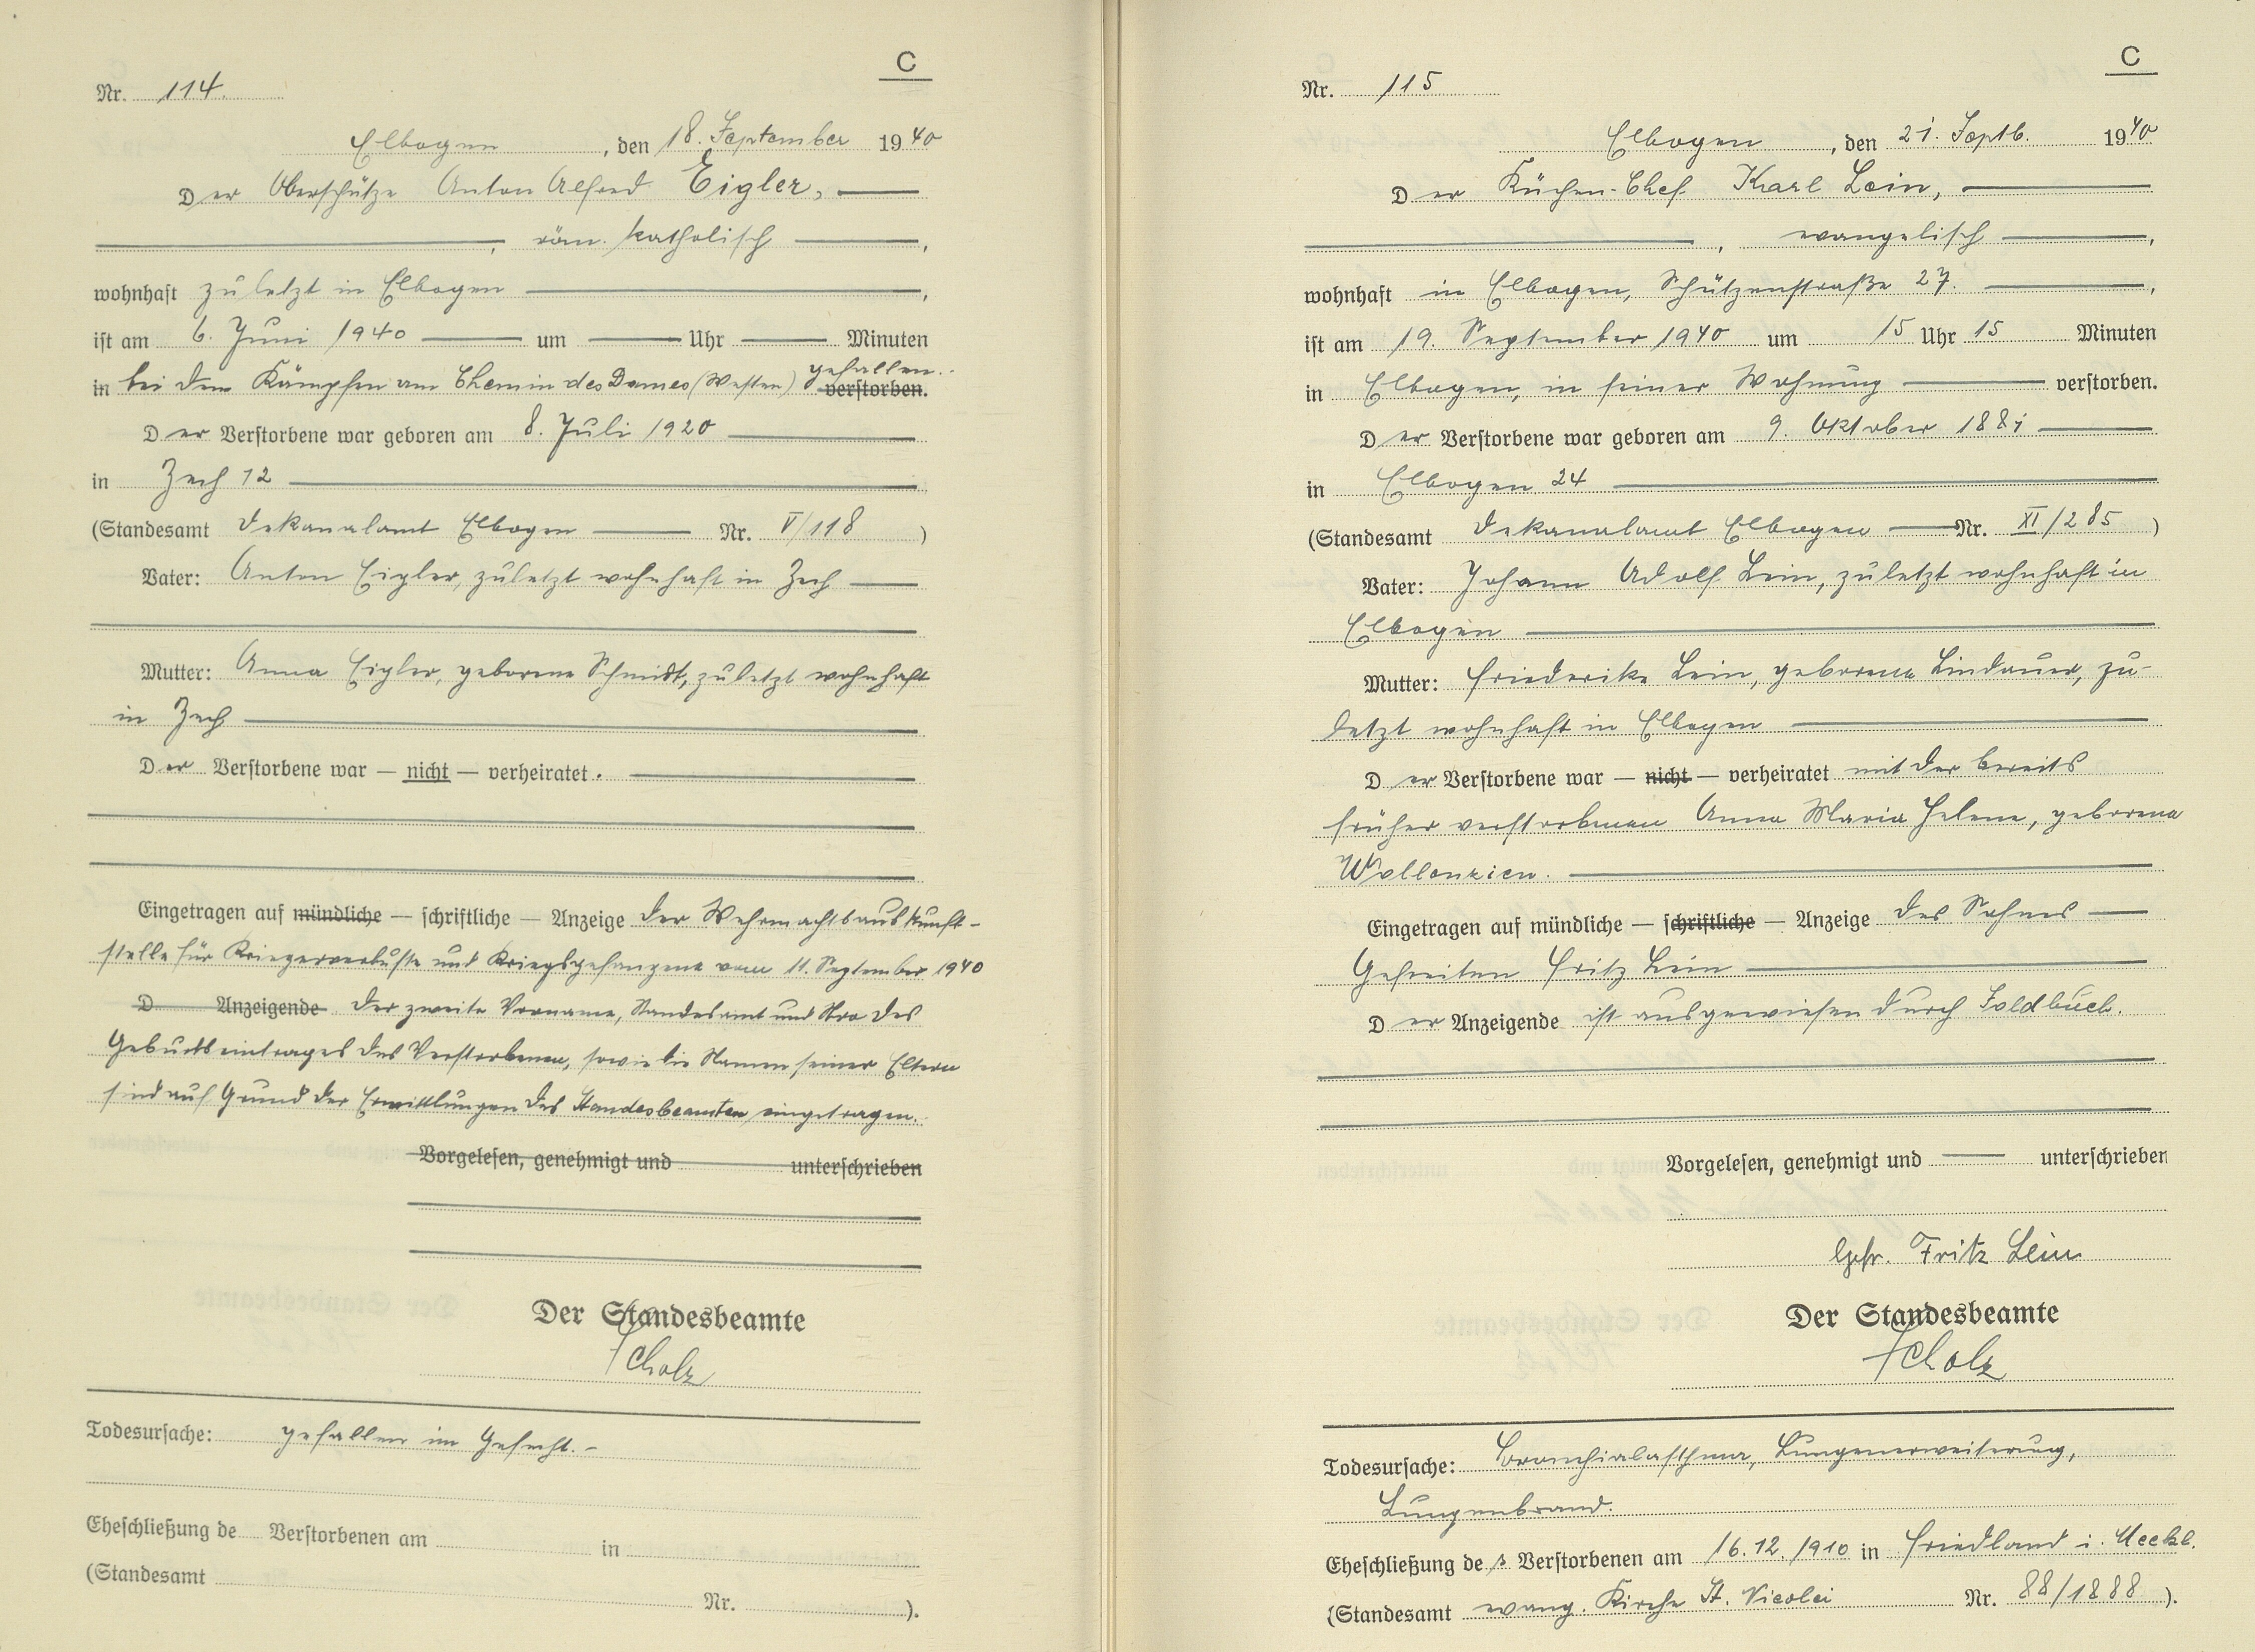 C
Nr. 114.
Elbogen, den 18. September 1940
Der Oberschütze Anton Alfred Eigler,
, röm. katholisch,
wohnhaft zuletzt in Elbogen,
ist am 6. Juni 1940 um Uhr Minuten
gefallen.
in bei den Kämpfen am Chemin des Dames (Westen) verstorben.
Der Verstorbene war geboren am 8. Juli 1920
in Zech 12
(Standesamt Dekanalamt Elbogen Nr. V/118)
Vater: Anton Eigler, zuletzt wohnhaft in Zech
Mutter: Anna Eigler, geborene Schmidt, zuletzt wohnhaft
in Zech
Der Verstorbene war — nicht — verheiratet.
Eingetragen auf mündliche — schriftliche — Anzeige der Wehrmachtsauskunft-
stelle für Kriegerverluste und Kriegsgefangene vom 11. September 1940
D Anzeigende Der zweite Vorname, Standesamt und Nro des
Geburtseintrages des Verstorbenen, sowie die Namen seiner Eltern
sind auf Grund der Ermittlungen des Standesbeamten eingetragen.
Vorgelesen, genehmigt und unterschrieben
Der Standesbeamte
Scholz
Todesursache: gefallen im Gefecht.-
Eheschließung de Verstorbenen am in
(Standesamt Nr. ).
C
Nr. 115
Elbogen, den 21. Septb. 1940
Der Küchen-Chef Karl Lein,
, evangelisch,
wohnhaft in Elbogen, Schützenstraße 27.,
ist am 19. September 1940 um 15 Uhr 15 Minuten
in Elbogen, in seiner Wohnung verstorben.
Der Verstorbene war geboren am 9. Oktober 1881
in Elbogen 24
(Standesamt Dekanalamt Elbogen Nr. XI/285)
Vater: Johann Adolf Lein, zuletzt wohnhaft in
Elbogen
Mutter: Friederike Lein, geborene Lindauer, zu-
letzt wohnhaft in Elbogen
Der Verstorbene war — nicht — verheiratet mit der bereits
früher verstorbenen Anna Maria Helene, geborene
Wollenzien.
Eingetragen auf mündliche — schriftliche — Anzeige des Sohnes
Gefreiten Fritz Lein
Der Anzeigende ist ausgewiesen durch Soldbuch.
Vorgelesen, genehmigt und unterschrieben
Gefr. Fritz Lein
Der Standesbeamte
Scholz
Todesursache: Bronchialasthma, Lungenerweiterung,
Lungenbrand.
Eheschließung des Verstorbenen am 16.12.1910 in Friedland i. Meckl.
(Standesamt evang. Kirche St. Nicolei Nr. 88/1888).